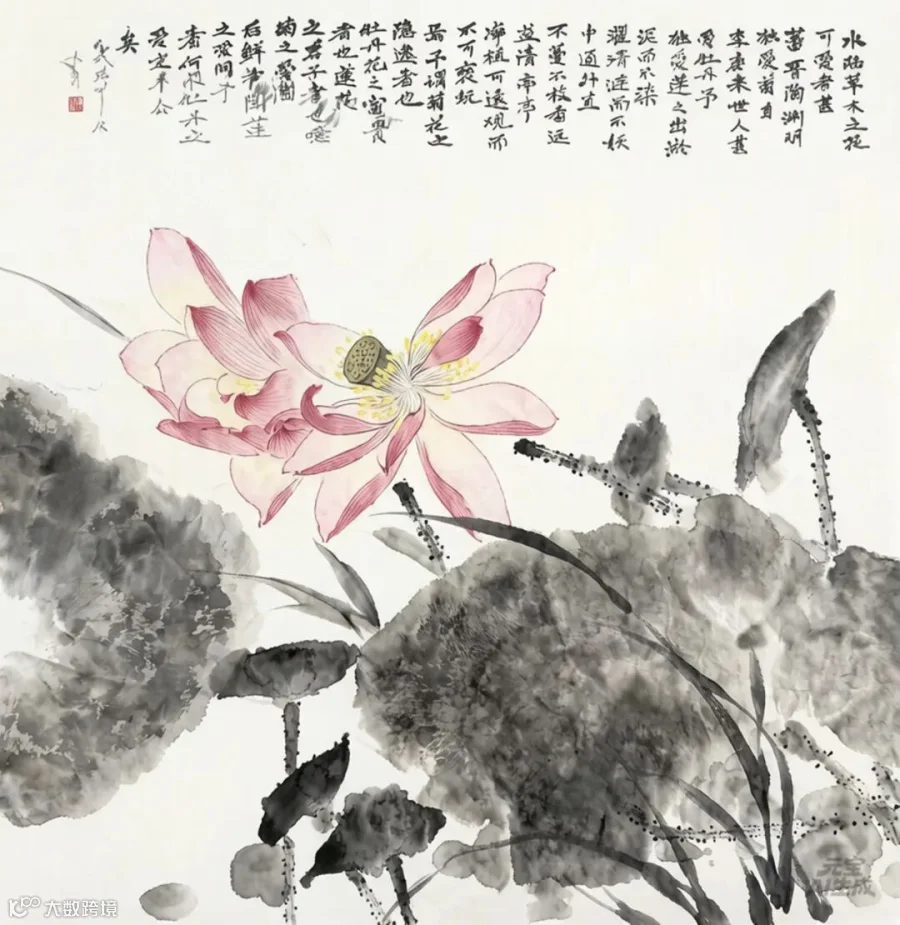 水陆草木之花
可愛者甚
蕃晋陶渊明
独愛菊自
李唐来世人甚
愛牡丹予
独愛莲之出淤
泥而不染
濯清涟而不妖
中通外直
不蔓不枝香远
益清亭亭
可远观而
不可亵玩
焉予谓菊花之
隐逸者也
牡丹花之富貴
者也莲花
之君子者也噫
菊之愛陶
后鲜有闻莲
之爱同予
者何
爱宜乎众
矣
大数跨境
元宝
AI生成